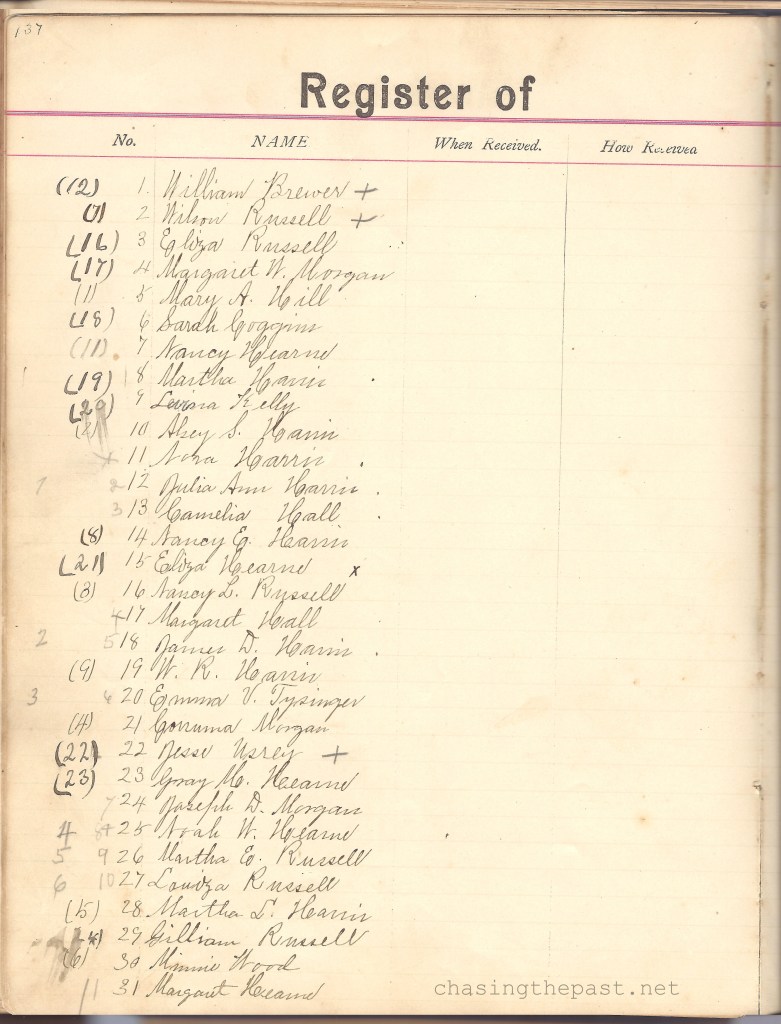 137
Register of
No. NAME When Received. How Received
(12) 1. William Brewer +
(7) 2 Wilson Russell +
(16) 3 Eliza Russell
(17) 4 Margaret W. Morgan
(1) 5 Mary A. Hill
(18) 6 Sarah Coggins
(11) 7 Nancy Hearne
(19) 8 Martha Harris
(20) 9 Levina Kelly
(2) 10 Alsey S. Harris
11 Nora Harris
1 2 12 Julia Ann Harris
3 13 Camelia Hall
(8) 14 Nancy E. Harris
(21) 15 Eliza Hearne x
(3) 16 Nancy L. Russell
4 17 Margaret Hall
2 5 18 James D. Harris
(9) 19 W. R. Harris
3 6 20 Emma V. Tysinger
(4) 21 Corruma Morgan
(22) 22 Jesse Usrey +
(23) 23 Gray M. Hearne
7 24 Joseph D. Morgan
4 8 25 Noah W. Hearne
5 9 26 Martha E. Russell
6 10 27 Louiza Russell
(15) 28 Martha L. Harris
29 Gilliam Russell
(6) 30 Minnie Wood
11 31 Margaret Hearne
chasingthepast.net